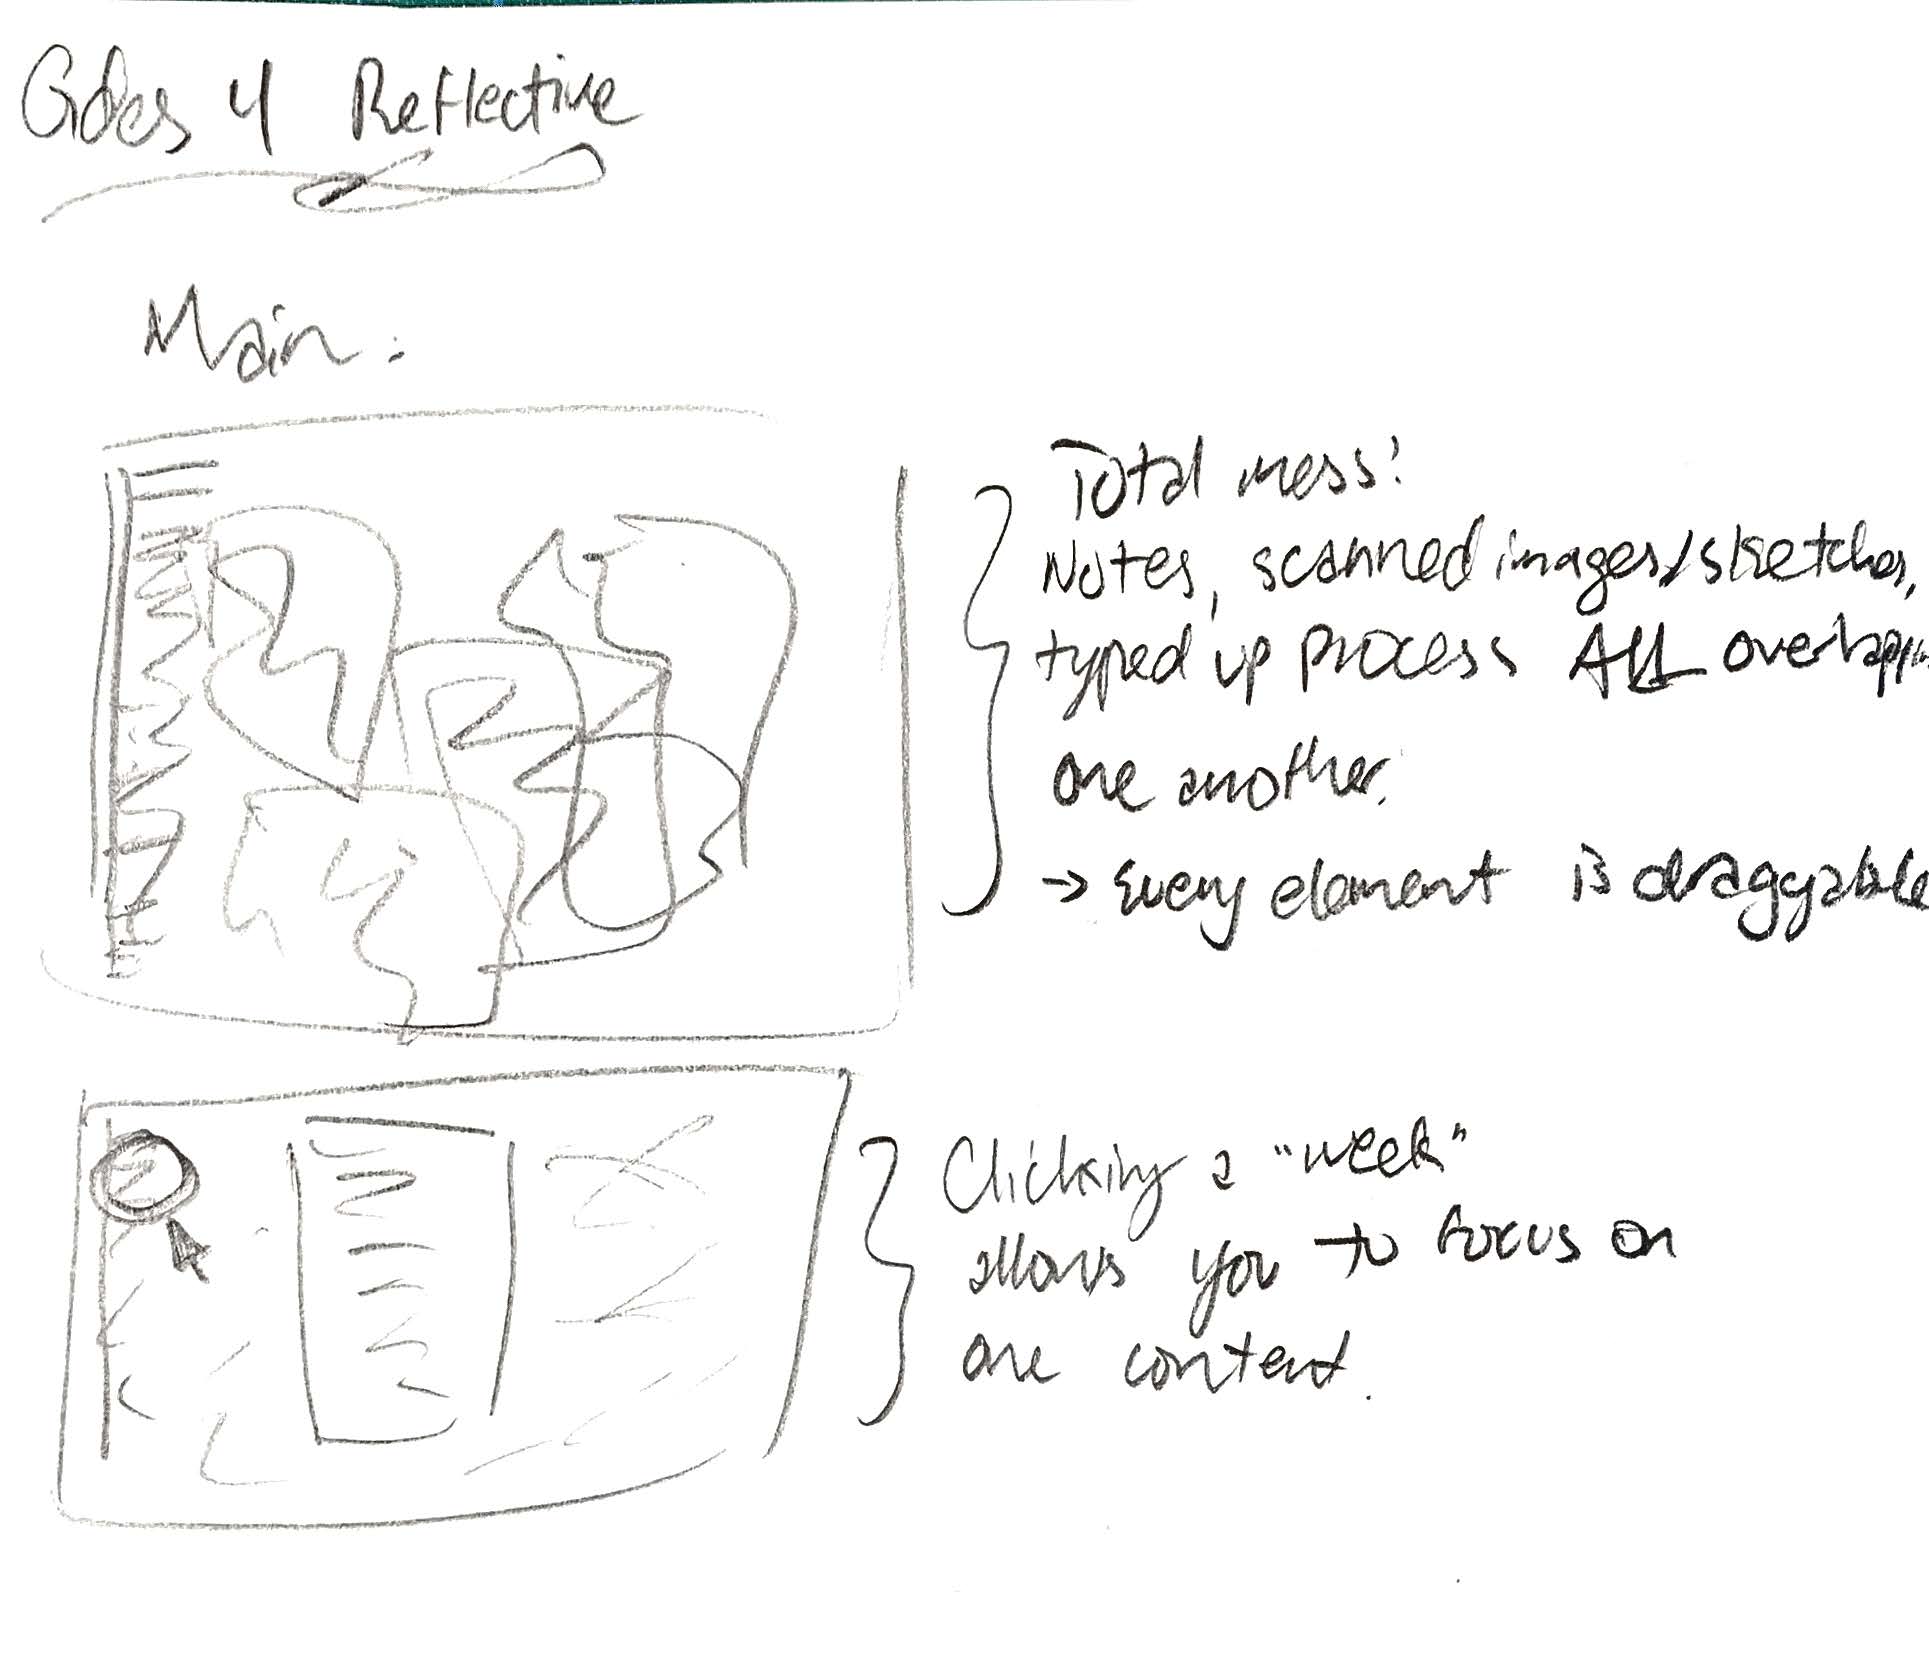 Gdes 4 Reflective
Main:
Total mess!
Notes, scanned images/sketches,
typed up process ALL overlappin
one another.
→ Every element is draggable
Clicking a "week"
allows you to focus on
one content.